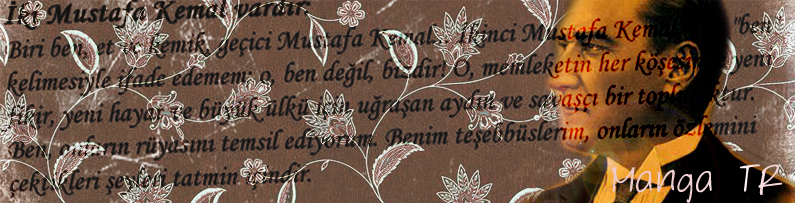 İki Mustafa Kemal vardır:
Biri ben, et ve kemik, geçici Mustafa Kemal... İkinci Mustafa Kemal, "ben"
kelimesiyle ifade edemem; o, ben değil, bizdir! O, memleketin her köşesinde yeni
fikir, yeni hayat ve büyük ülkü için uğraşan aydın ve savaşçı bir topluluktur.
Ben, onların rüyasını temsil ediyorum. Benim teşebbüslerim, onların özlemini
çektikleri şeyleri tatmin içindir.
Manga TR